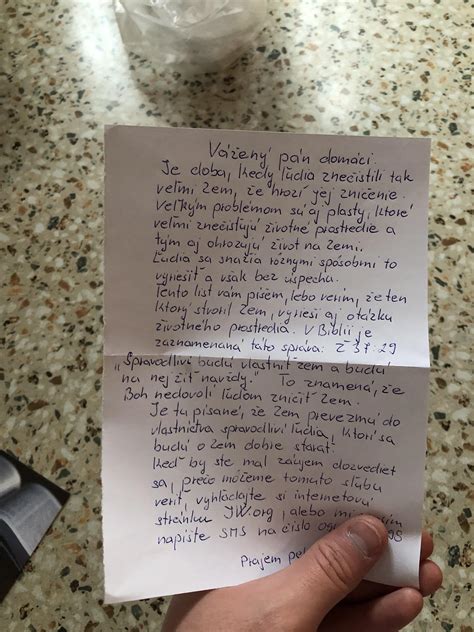 Vážený pán domáci.
Je doba, kedy ľúdia znečistili tak
veľmi Zem, že hrozí jej zničenie.
Veľkým problémom sú aj plasty, ktoré
veľmi znečisťujú životné prostredie a
tým aj ohrozujú život na Zemi.
Ľudia sa snažia róznymi spósobmi to
vyriešiť a však bez úspechu.
Tento list vám píšem, lebo verím, že ten
ktorý stvoril Zem, vyrieši aj otázku
životného prostredia. V Biblii je
zaznamenaná táto správa: Ž 37:29
„Spravodliví budú vlastniť zem a budú
na nej žiť navždy." To znamená, že
Boh nedovolí ľuďom zničiť Zem.
Je tu písané, že Zem prevezmú do
vlastníctva spravodliví ľudia, ktorí sa
budú o Zem dobre starať.
Keď by ste mal záujem dozvedieť
sa, prečo môžeme tomuto sľubu
veriť, vyhľadajte si internetovú
stránku JW.org, alebo mi
napíšte SMS na číslo
Prajem